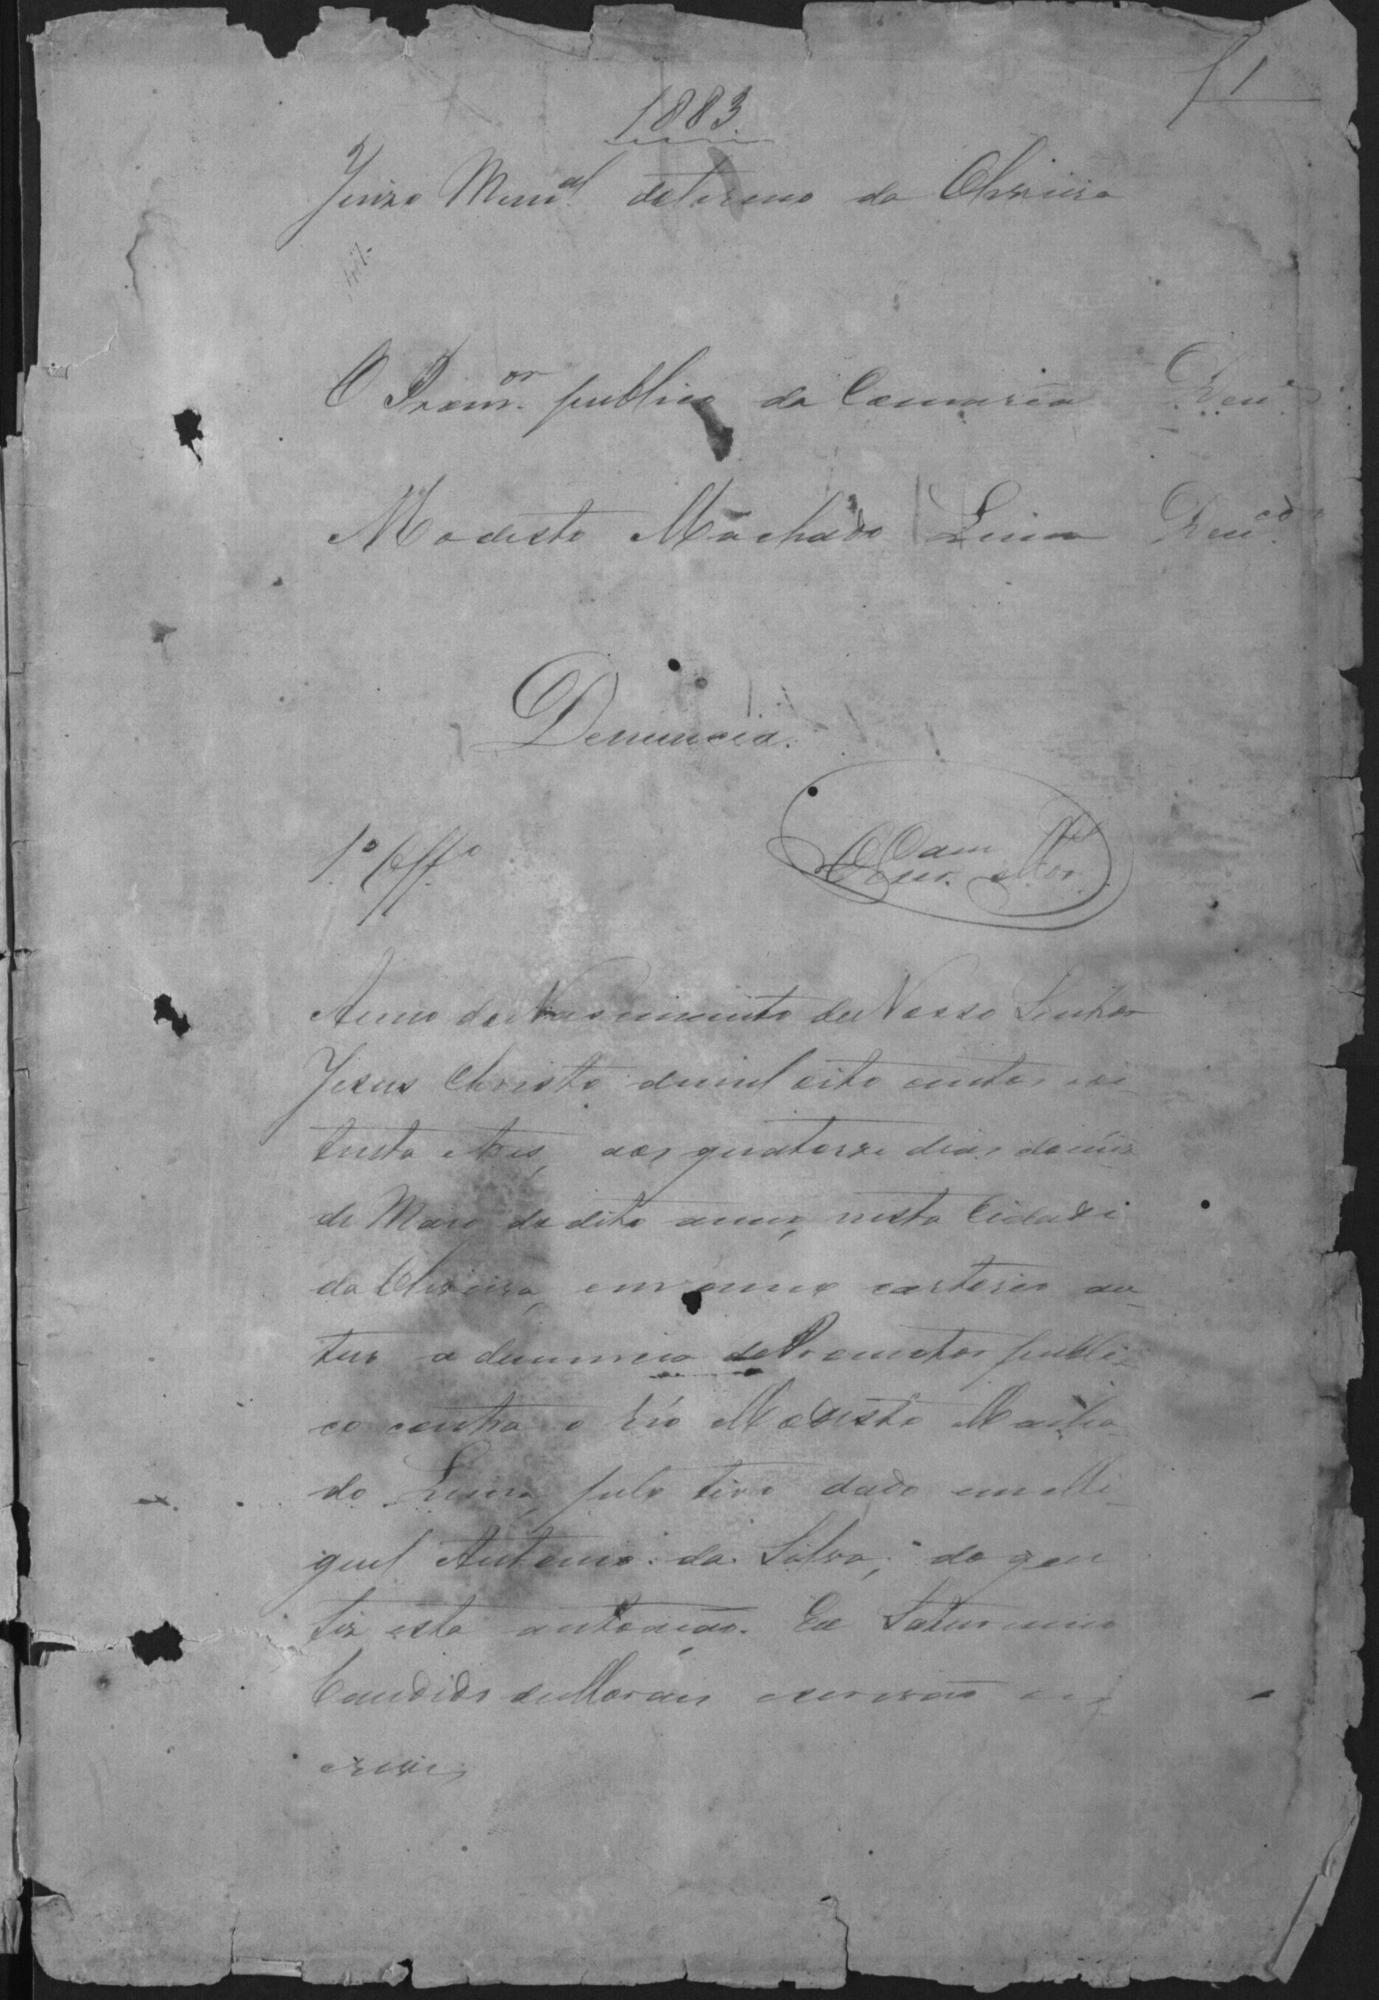 f 1
1883
Juizo Mun.al do termo da Oliveira
O Prom.or publico da Comarca Den.e
Modesto Machado Lima Den.cdo
Denuncia.
1.º Off.º
Escr. Mor.
Anno do Nascimento de Nosso Senhor
Jesus Christo de mil oito centos oi-
tenta e tres, aos quatorze dias do mez
de Maio do dito anno, nesta Cidade
da Oliveira, em meu cartorio au-
tuo a denuncia do Promotor publi-
co contra o réo Modesto Macha-
do Lima, pelo tiro dado em Mi-
guel Antonio da Silva; do que
fiz esta autoação. Eu Saturnino
Candido de Moraes escrivão es-
crevi